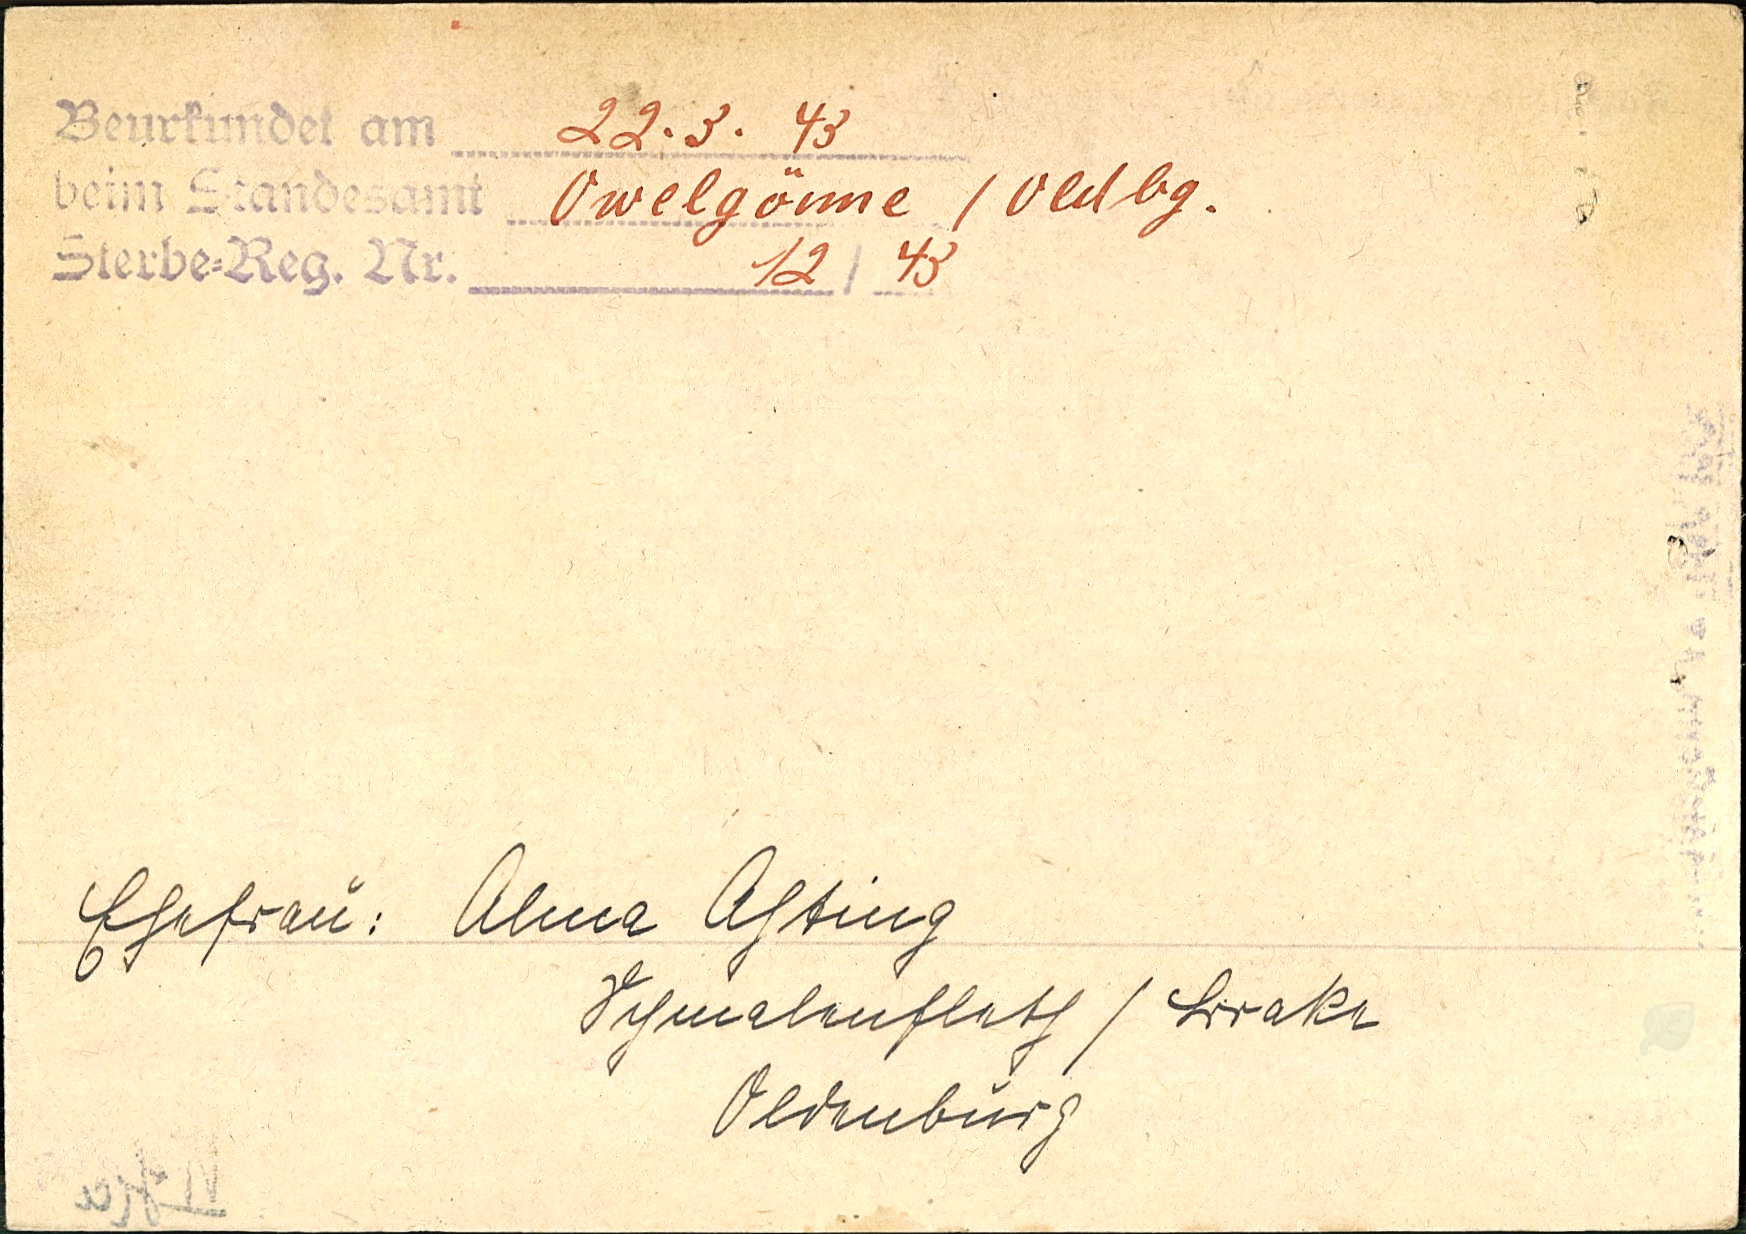 Beurkundet am 22.3. 43
beim Standesamt Owelgönne / Oldbg.
Sterbe=Reg. Nr. 12 / 43
Ehefrau: Alma Ahting
Schmalenfleth / Brake
Oldenburg